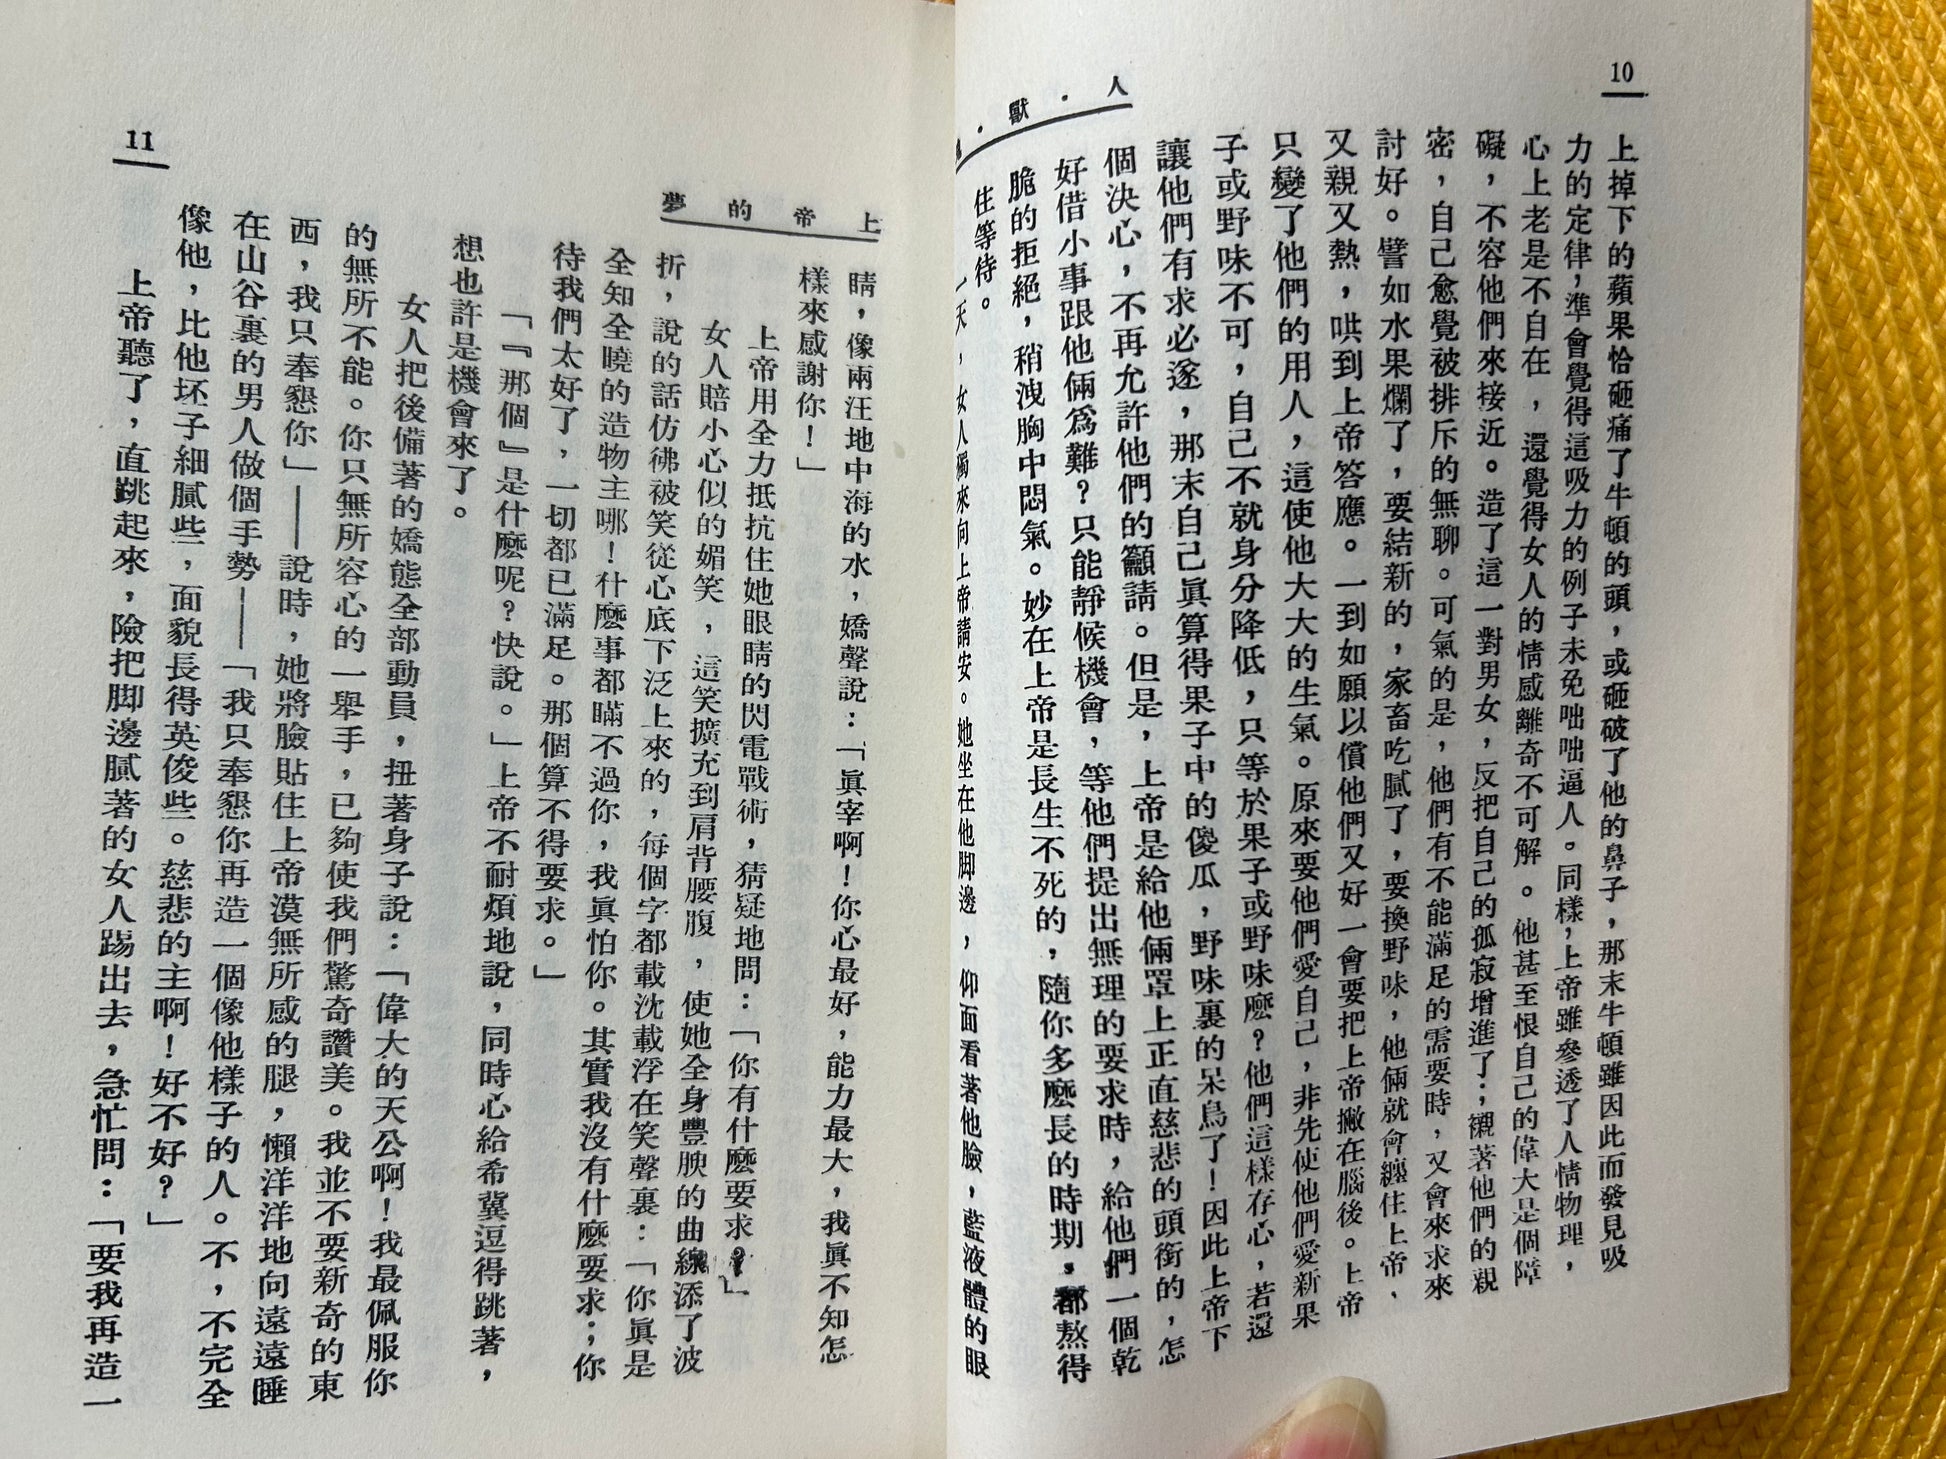 10
人・獸・
上掉下的蘋果恰砸痛了牛頓的頭，或砸破了他的鼻子，那末牛頓雖因此而發見吸
力的定律，準會覺得這吸力的例子未免咄咄逼人。同樣，上帝雖參透了人情物理，
心上老是不自在，還覺得女人的情感離奇不可解。他甚至恨自己的偉大是個障
礙，不容他們來接近。造了這一對男女，反把自己的孤寂增進了；襯著他們的親
密，自己愈覺被排斥的無聊。可氣的是，他們有不能滿足的需要時，又會來求來
討好。譬如水果爛了，要結新的，家畜吃膩了，要換野味，他倆就會纏住上帝，
又親又熱，哄到上帝答應。一到如願以償他們又好一會要把上帝撇在腦後。上帝
只變了他們的用人，這使他大大的生氣。原來要他們愛自己，非先使他們愛新果
子或野味不可，自己不就身分降低，只等於果子或野味麼？他們這樣存心，若還
讓他們有求必遂，那末自己眞算得果子中的傻瓜，野味裏的呆鳥了！因此上帝下
個決心，不再允許他們的籲請。但是，上帝是給他倆罩上正直慈悲的頭銜的，怎
好借小事跟他倆爲難？只能靜候機會，等他們提出無理的要求時，給他們一個乾
脆的拒絕，稍洩胸中悶氣。妙在上帝是長生不死的，隨你多麽長的時期，都熬得
住等待。
一天，女人獨來向上帝請安。她坐在他脚邊，仰面看著他臉，藍液體的眼
上帝的夢
睛，像兩汪地中海的水，嬌聲說：「眞宰啊！你心最好，能力最大，我眞不知怎
樣來感謝你！」
上帝用全力抵抗住她眼睛的閃電戰術，猜疑地問：「你有什麽要求？」
女人賠小心似的媚笑，這笑擴充到肩背腰腹，使她全身豐腴的曲線添了波
折，說的話仿彿被笑從心底下泛上來的，每個字都載沈載浮在笑聲裏：「你眞是
全知全曉的造物主哪！什麽事都瞞不過你，我眞怕你。其實我沒有什麽要求；你
待我們太好了，一切都已滿足。那個算不得要求。」
「『那個』是什麽呢？快說。」上帝不耐煩地說，同時心給希冀逗得跳著，
想也許是機會來了。
女人把後備著的嬌態全部動員，扭著身子說：「偉大的天公啊！我最佩服你
的無所不能。你只無所容心的一舉手，已夠使我們驚奇讚美。我並不要新奇的東
西，我只奉懇你」——說時，她將臉貼住上帝漠無所感的腿，懶洋洋地向遠遠睡
在山谷裏的男人做個手勢——「我只奉懇你再造一個像他樣子的人。不，不完全
像他，比他坯子細膩些，面貌長得英俊些。慈悲的主啊！好不好？」
上帝聽了，直跳起來，險把脚邊膩著的女人踢出去，急忙問：「要我再造一
11